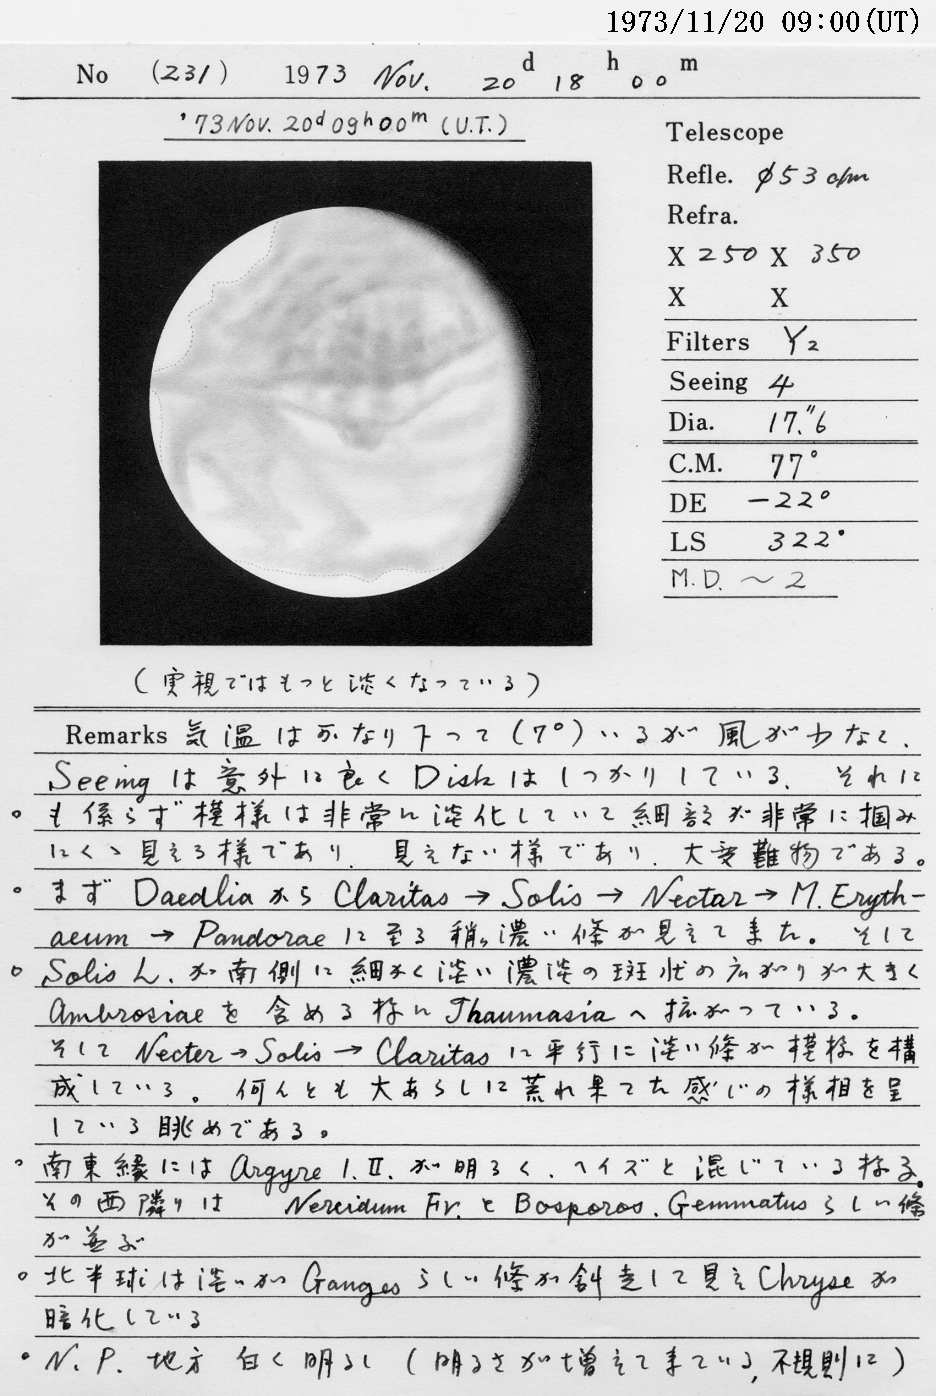 1973/11/20 09:00(UT)
No (231) 1973 Nov. 20d 18h 00m
'73 Nov. 20d 09h00m (U.T.)
Telescope
Refle. φ53 c/m
Refra.
X 250 X 350
X X
Filters Y2
Seeing 4
Dia. 17."6
C.M. 77°
DE -22°
LS 322°
M.D. ～2
(実視ではもっと淡くなっている)
Remarks 気温は可なり下って(7°)いるが風が少なく、
Seeing は意外に良く Disk はしっかりしている. それに
o も係らず模様は非常に淡化していて細部が非常に掴み
にくゝ見える様であり、見えない様であり、大変難物である。
o まず Daedlia から Claritas → Solis → Nectar → M. Eryth-
aeum → Pandorae に至る稍々濃い條が見えてまた。そして
o Solis L. が南側に細かく淡い濃淡の斑状の広がりが大きく
Ambrosiae を含める様に Thaumasia へ拡がっている。
そして Necter → Solis → Claritas に平行に淡い條が模様を構
成している。何んとも大あらしに荒れ果てた感じの様相を呈
している眺めである。
o 南東縁には Argyre I.II. が明るく、ヘイズと混じている様子。
その西隣りは Nereidum Fr. と Bosporos. Gemmatus らしい條
が並ぶ
o 北半球は淡いが Ganges らしい條が斜走して見え Chryse が
暗化している
• N.P. 地方 白く明るし (明るさが増えて来ている, 不規則に)